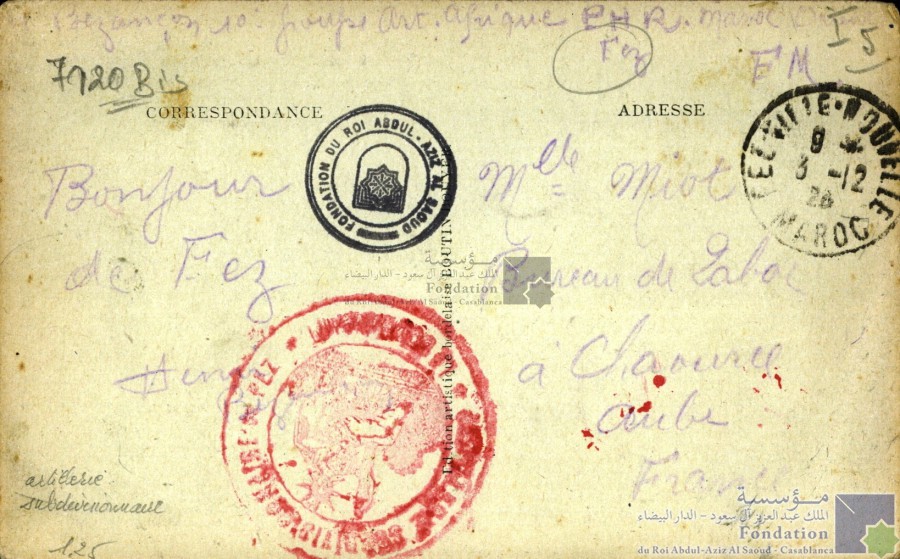 Bezançon 10e groupe Art. Afrique P.H.R. Maroc
Fez
FM
I 5
7120 Bis
CORRESPONDANCE
ADRESSE
FONDATION DU ROI ABDUL-AZIZ AL SAOUD
FEZ-VILLE-NOUVELLE
9
3 -12
MAROC
Bonjour
de Fez
Henri
Mlle Miot
Bureau de Tabac
à Chaource
Aube
France
Edition artistique bordelaise BOUTIN
مؤسسة
الملك عبد العزيز آل سعود - الدار البيضاء
Fondation
du Roi Abdul-Aziz Al Saoud - Casablanca
artillerie
subdivisionnaire
125
مؤسسة
الملك عبد العزيز آل سعود - الدار البيضاء
Fondation
du Roi Abdul-Aziz Al Saoud - Casablanca